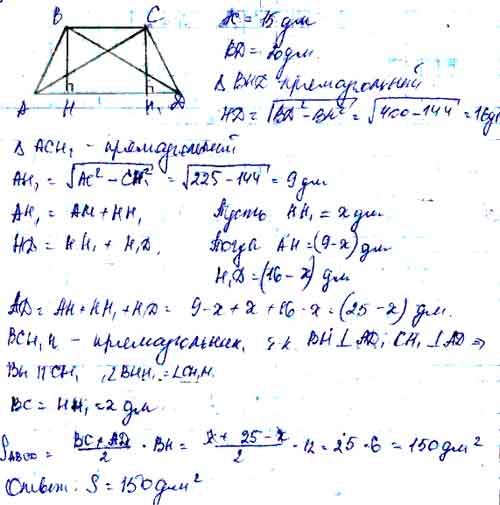 B C
A H H₁ D
AC = 15 дм
BD = 20 дм.
Δ BHD - прямоугольный
HD = √BD² - BH² = √400 - 144 = 16 д
Δ ACH₁ - прямоугольный
AH₁ = √AC² - CH₁² = √225 - 144 = 9 дм
AH₁ = AH + HH₁ Пусть HH₁ = x дм
HD = HH₁ + H₁D. Тогда AH = (9-x) дм
H₁D = (16 - x) дм
AD = AH + HH₁ + H₁D = 9 - x + x + 16 - x = (25 - x) дм.
BCH₁H - прямоугольник, т.к. BH ⊥ AD; CH₁ ⊥ AD ⇒
BH || CH₁, ∠BHH₁ = ∠CH₁H.
BC = HH₁ = x дм
S_ABCD = (BC + AD)/2 · BH = (x + 25 - x)/2 · 12 = 25 · 6 = 150 дм²
Ответ: S = 150 дм²